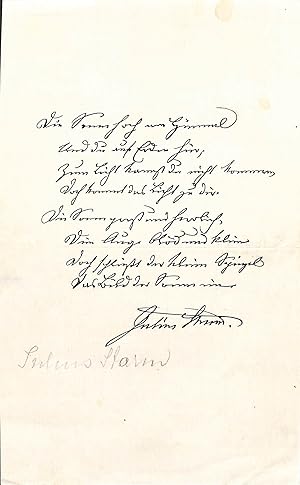 Die Sonne hoch am Himmel
Und du auf Erden hier,
Zum Licht kannst du nicht kommen,
Doch kommt das Licht zu dir.
Die Sonne groß und herrlich,
Dein Auge und klein
Doch schließt der kleine Spiegel
Das Bild der Sonne ein.
Julius Sturm.
Julius Sturm